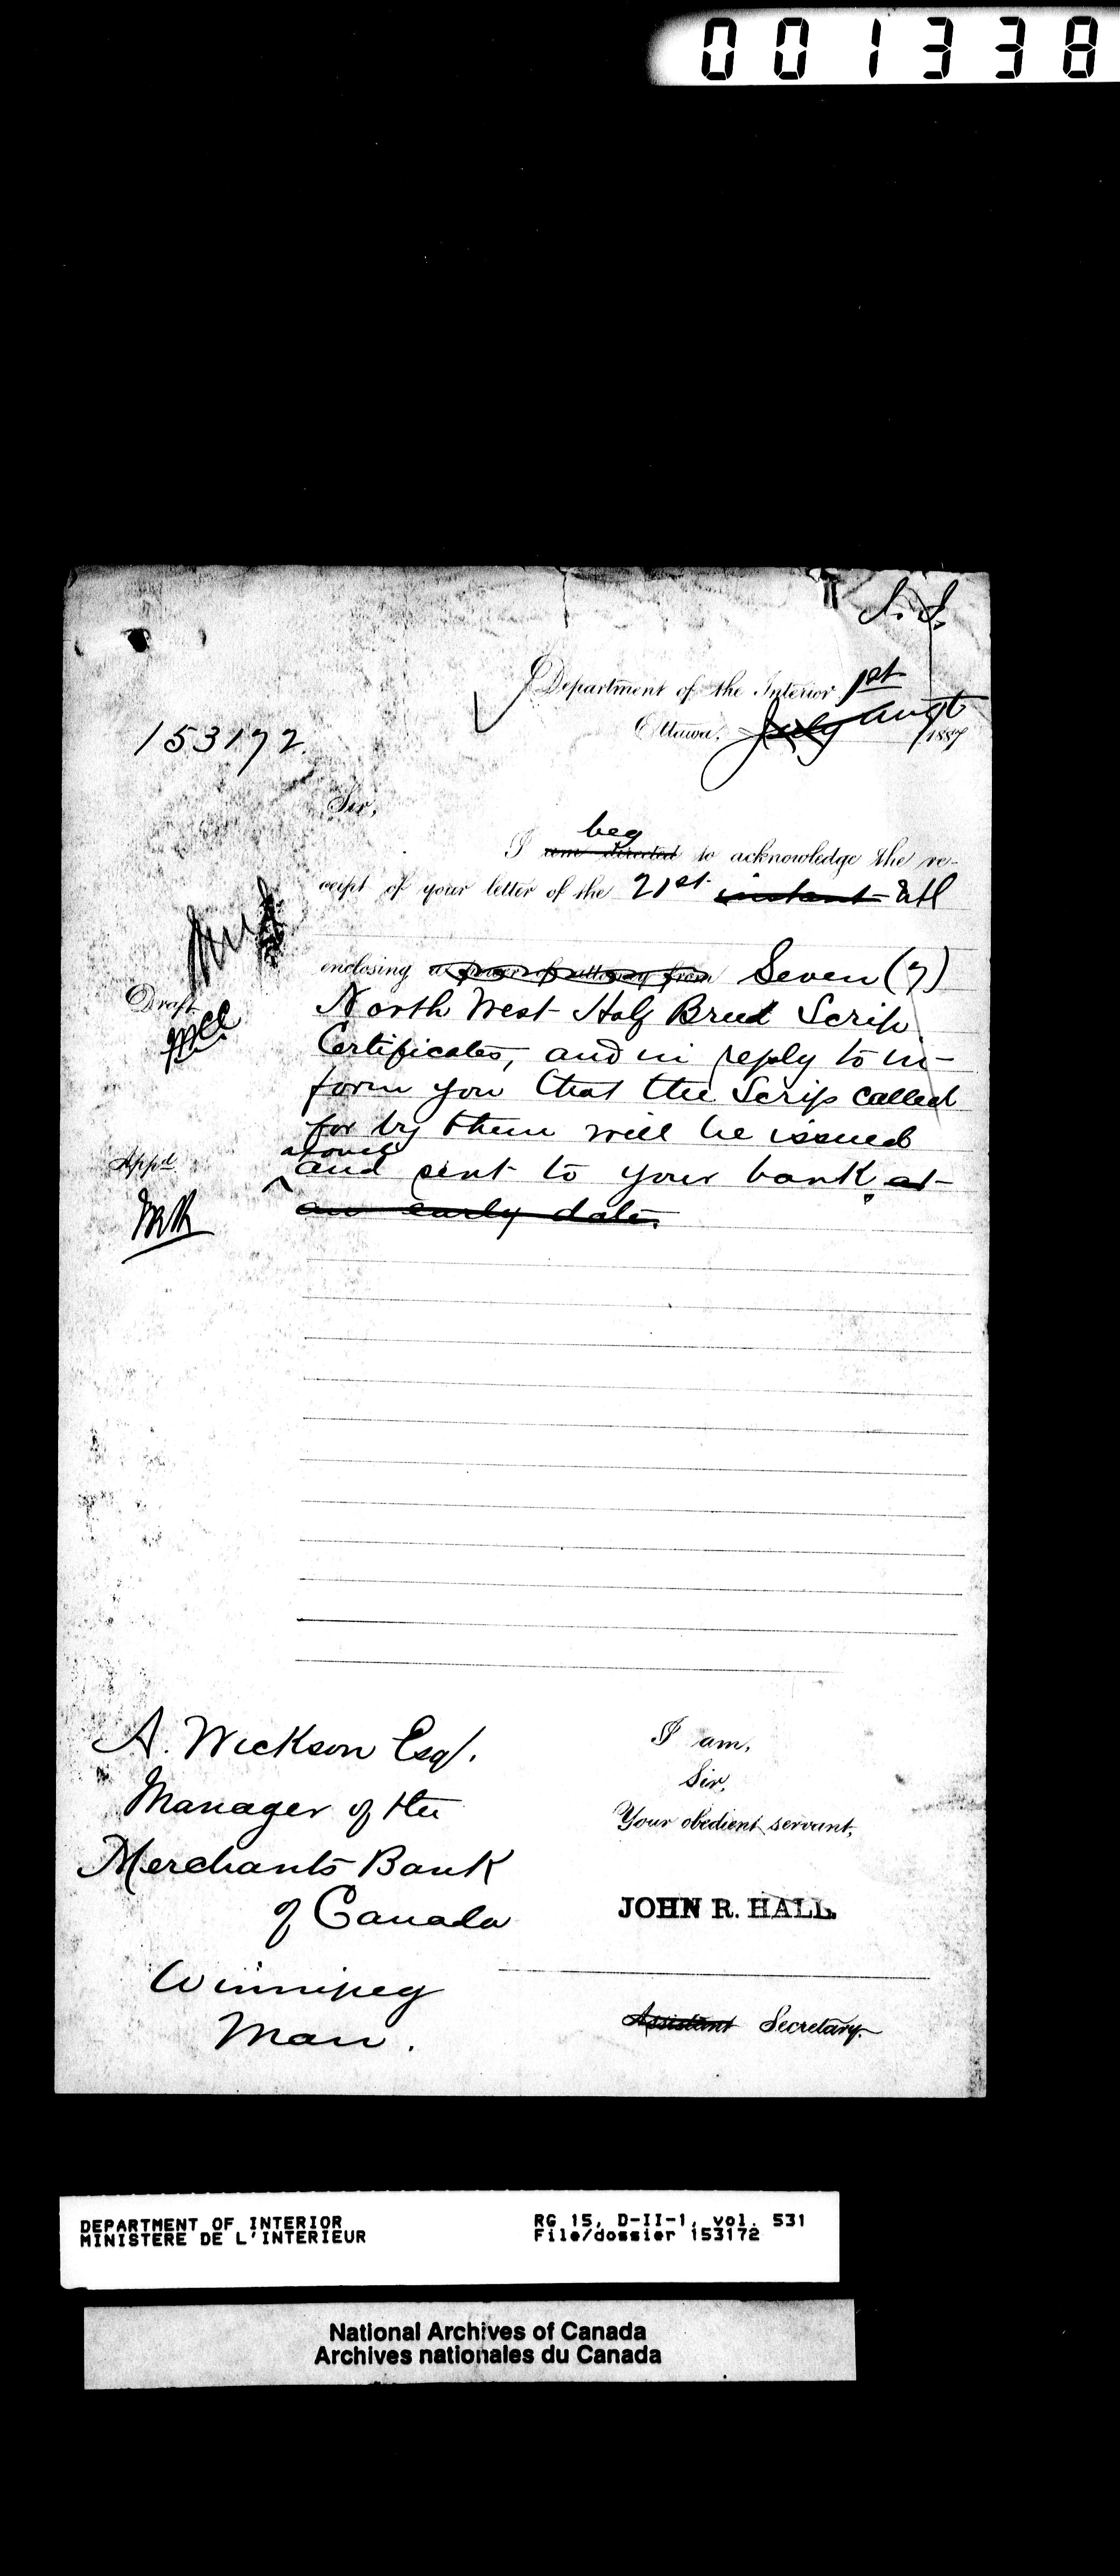 001338
S. S.
Department of the Interior 1st
Ottawa, July Augt 1887
153172.
Sir,
beg
I am directed to acknowledge the re-
ceipt of your letter of the 21st instant Ult
enclosing a power of attorney from Seven (7)
Draft
North West Half Breed Scrip
Certificates, and in reply to in-
form you that the Scrip called
for by them will be issued
Appd
at once
and sent to your bank. at
an early date.
A. Wickson Esq.
Manager of the
Merchants Bank
of Canada
Winnipeg
Man.
I am,
Sir,
Your obedient servant,
JOHN R. HALL.
Assistant Secretary.
DEPARTMENT OF INTERIOR
MINISTERE DE L'INTERIEUR
RG 15, D-II-1, vol. 531
File/dossier 153172
National Archives of Canada
Archives nationales du Canada